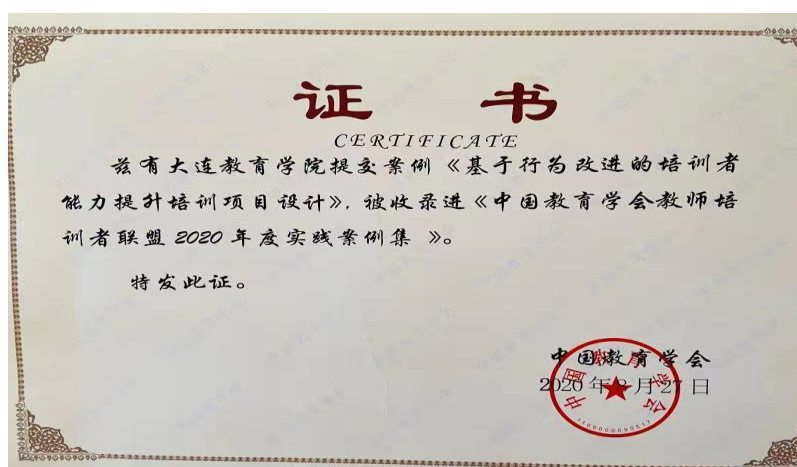 证 书
CERTIFICATE
兹有大连教育学院提交案例《基于行为改进的培训者
能力提升培训项目设计》，被收录进《中国教育学会教师培
训者联盟 2020 年度实践案例集 》。
特发此证。
中国教育学会
2020 年8月27日
中国教育学会